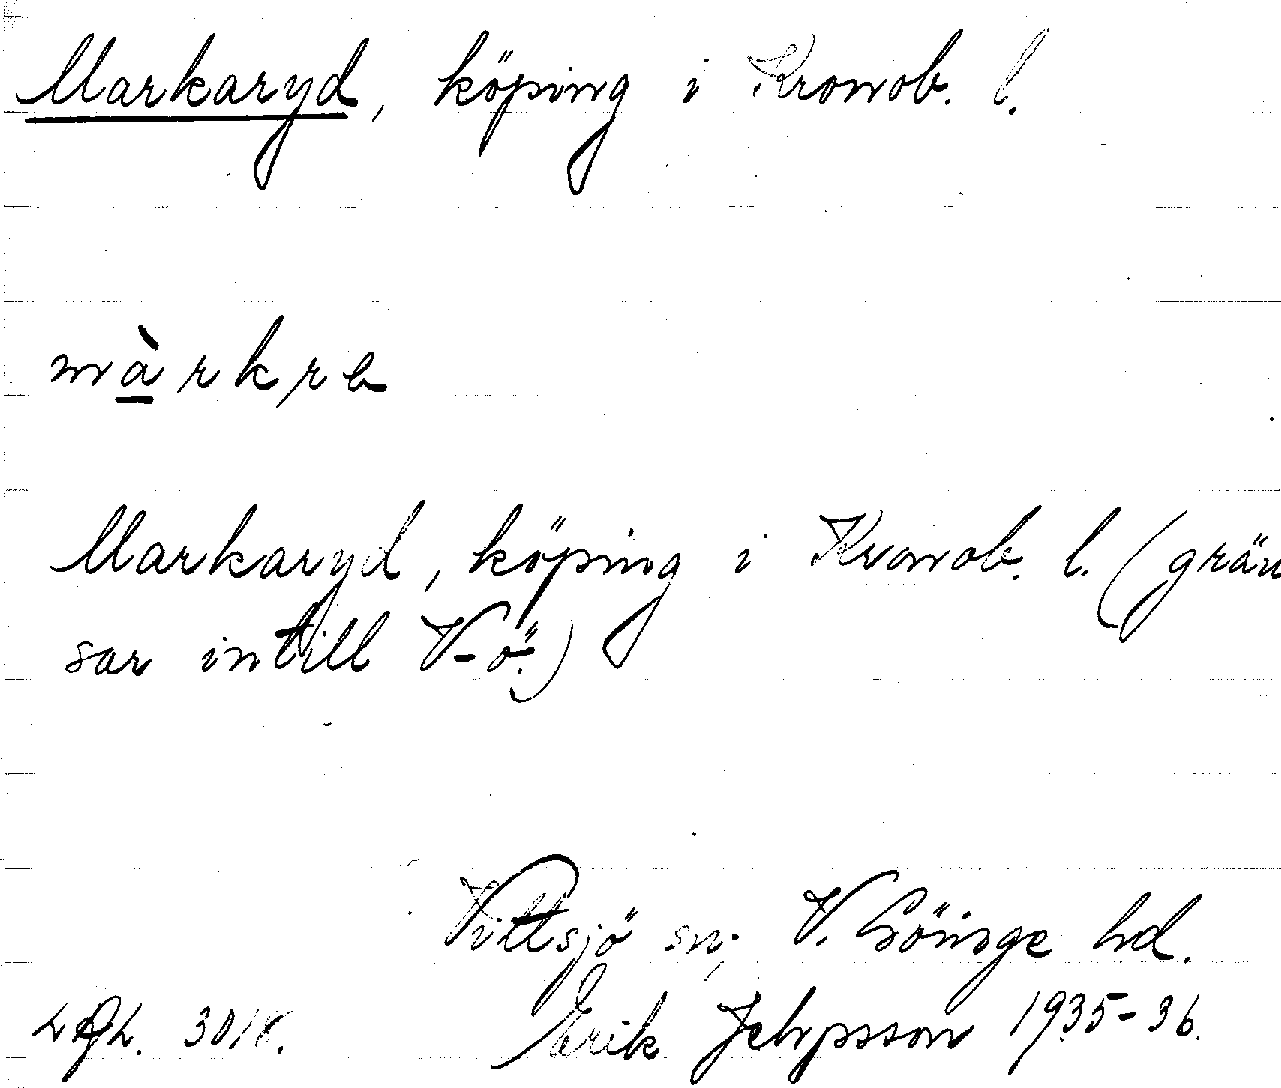 Markaryd, köping i Kronob. l.
màrkre
Markaryd, köping i Kronob. l. (grän
sar intill V-ö.)
Vittsjö sn; V. Göinge hd.
Erik Jeppsson 1935-36.